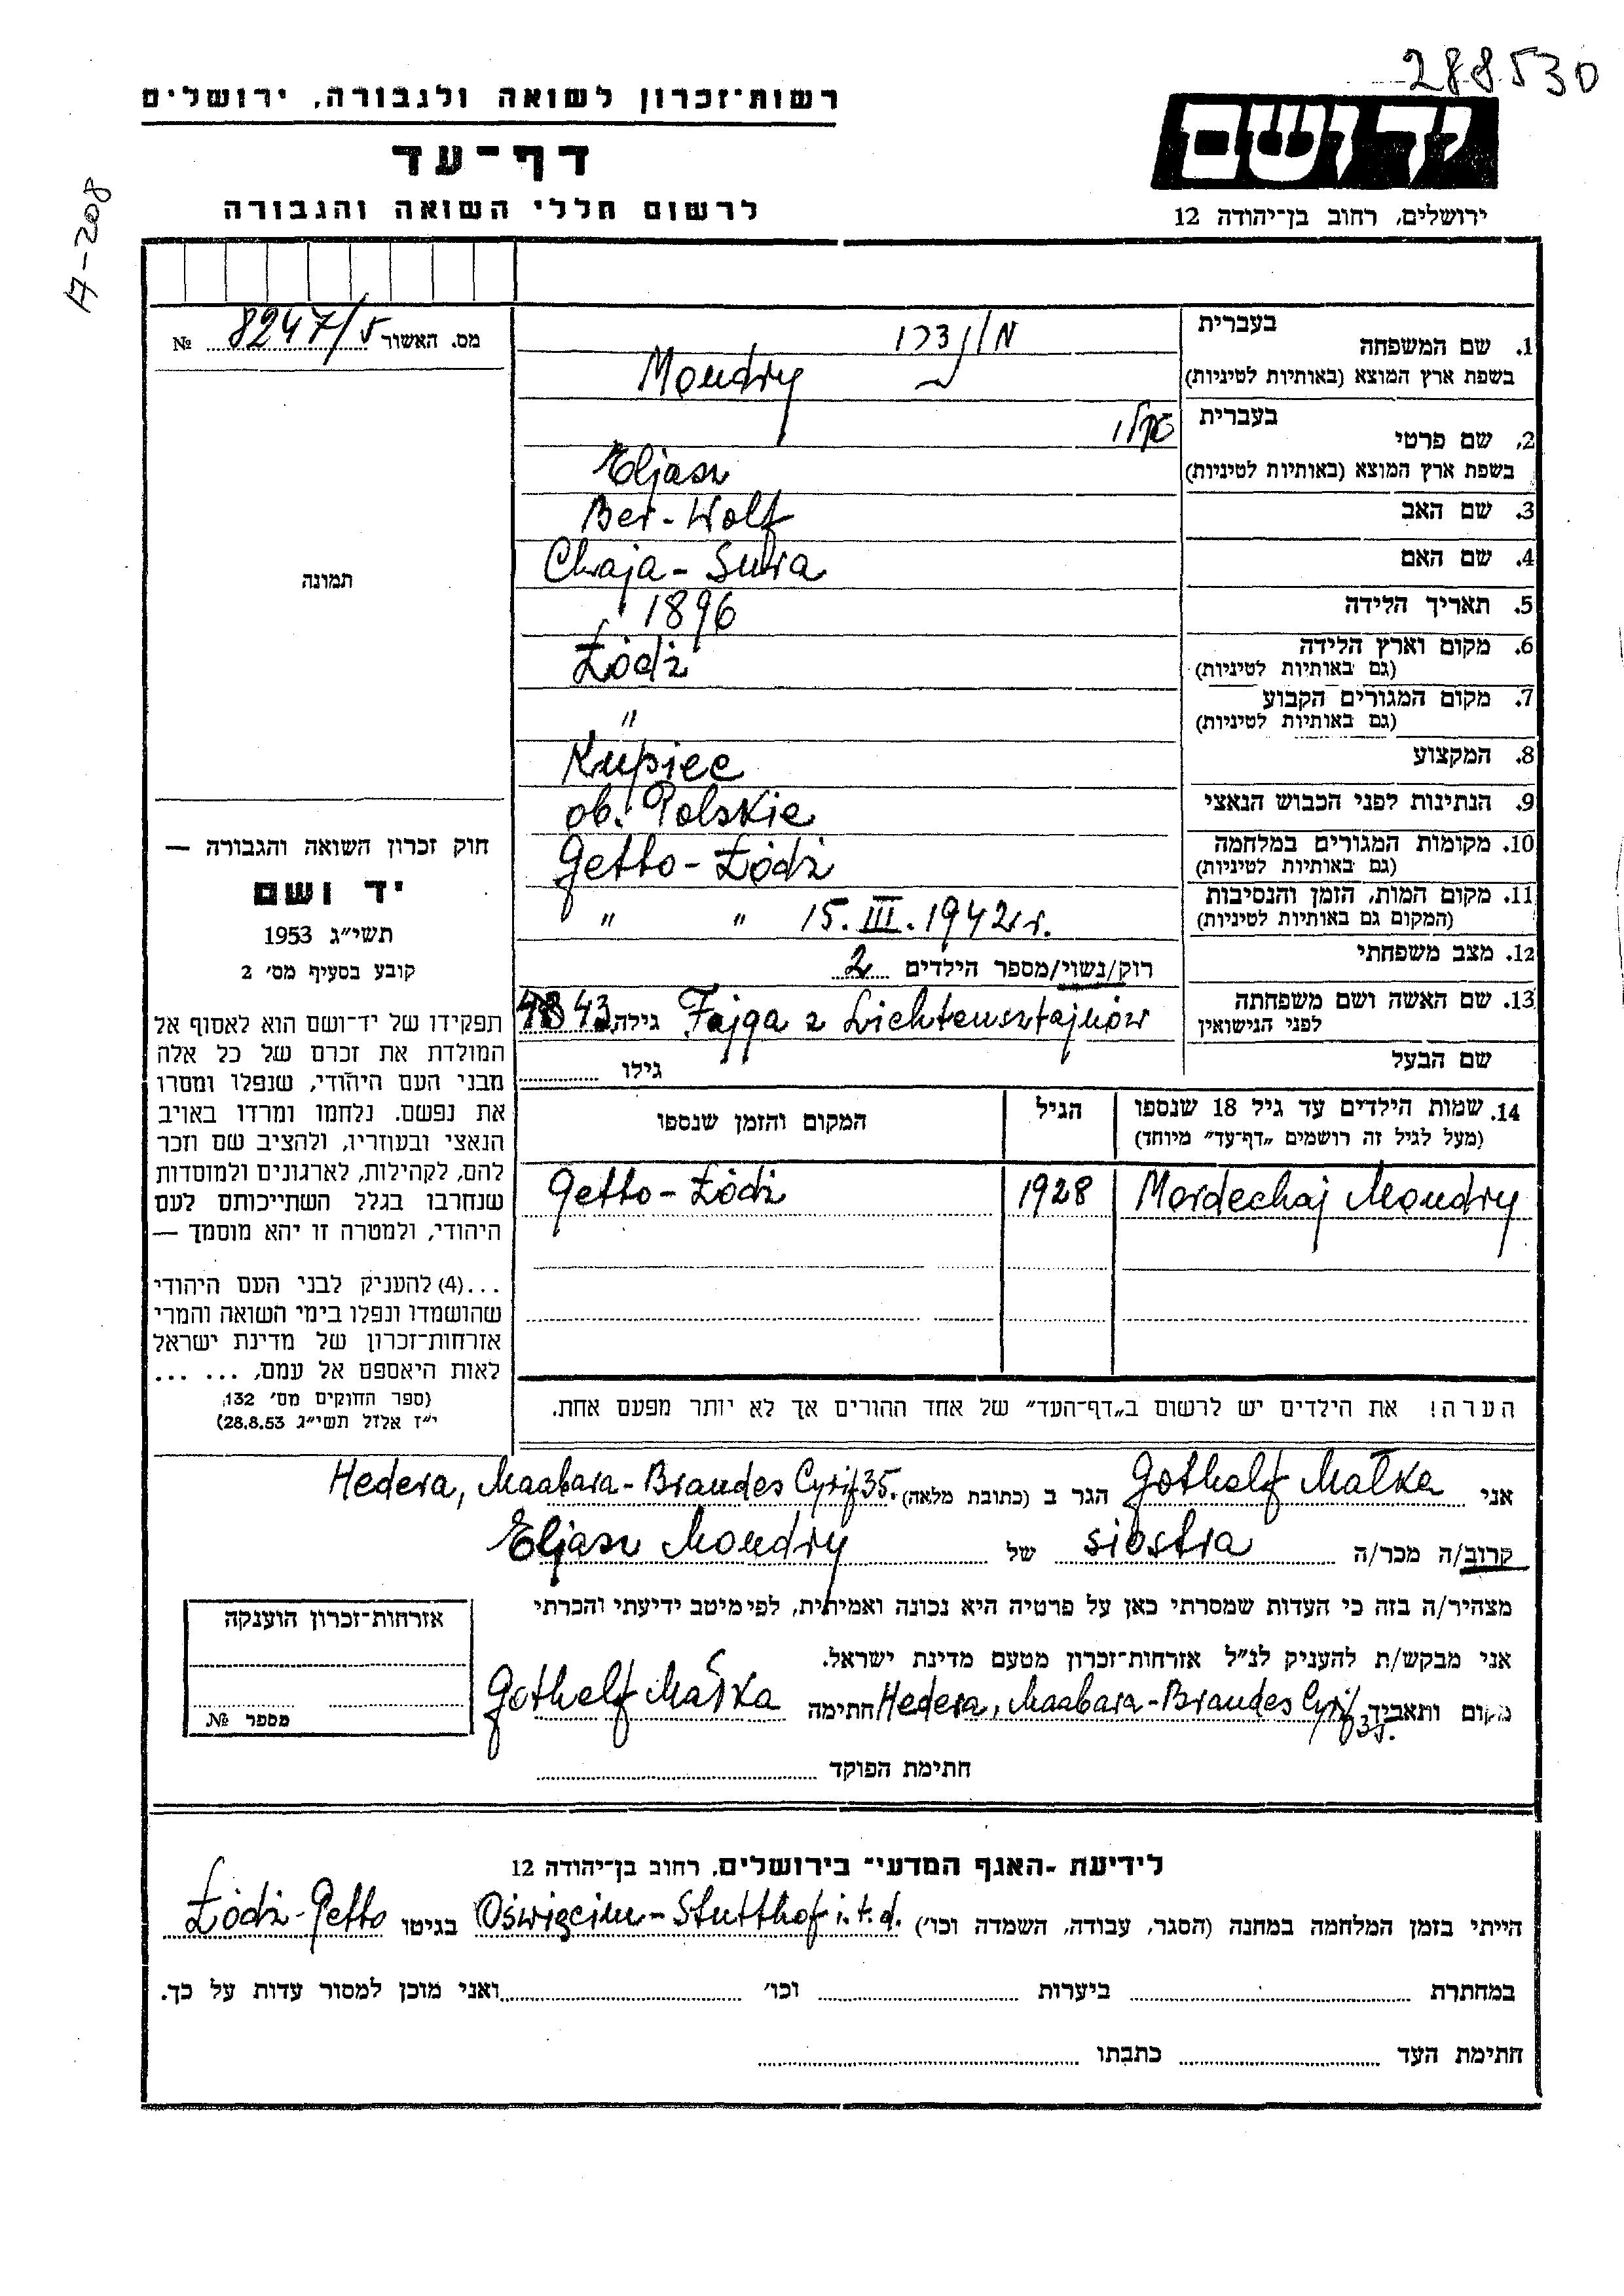 288530
רשות־זכרון לשואה ולגבורה, ירושלים
דף־עד
לרשום חללי השואה והגבורה
ידושם
ירושלים, רחוב בן־יהודה 12
A-208
מס. האשור 8247/5 №
תמונה
חוק זכרון השואה והגבורה —
יד ושם
תשי״ג 1953
קובע בסעיף מס׳ 2
תפקידו של יד־ושם הוא לאסוף אל
המולדת את זכרם של כל אלה
מבני העם היהודי, שנפלו ומסרו
את נפשם. נלחמו ומרדו באויב
הנאצי ובעוזריו, ולהציב שם וזכר
להם, לקהילות, לארגונים ולמוסדות
שנחרבו בגלל השתייכותם לעם
היהודי, ולמטרה זו יהא מוסמך —
...(4) להעניק לבני העם היהודי
שהושמדו ונפלו בימי השואה והמרי
אזרחות־זכרון של מדינת ישראל
לאות היאספם אל עמם, ... ...
(ספר החוקים מס׳ 132,
י״ז אלול תשי״ג 28.8.53)
1. שם המשפחה
בעברית
בשפת ארץ המוצא (באותיות לטיניות) Moudry
2. שם פרטי
בעברית
בשפת ארץ המוצא (באותיות לטיניות) Eljasz
3. שם האב Ber-Wolf
4. שם האם Chaja-Sura
5. תאריך הלידה 1896
6. מקום וארץ הלידה Łódź
(גם באותיות לטיניות)
7. מקום המגורים הקבוע "
(גם באותיות לטיניות)
8. המקצוע Kupiec
9. הנתינות לפני הכבוש הנאצי ob. Polskie
10. מקומות המגורים במלחמה Getto-Łódź
(גם באותיות לטיניות)
11. מקום המות, הזמן והנסיבות " " 15. III. 1942 r.
(המקום גם באותיות לטיניות)
12. מצב משפחתי רוק/נשוי/מספר הילדים 2
13. שם האשה ושם משפחתה Fajga z Lichtensztajnów גילה 43
לפני הנישואין
שם הבעל גילו
14. שמות הילדים עד גיל 18 שנספו הגיל המקום והזמן שנספו
(מעל לגיל זה רושמים „דף־עד״ מיוחד)
Mordechaj Moudry 1928 Getto-Łódź
הערה! את הילדים יש לרשום ב„דף־העד״ של אחד ההורים אך לא יותר מפעם אחת.
אני Gothelf Małka הגר ב (כתובת מלאה) Hedera, Maabara-Brandes Cyrif 35.
קרוב/ה מכר/ה siostra של Eljasz Moudry
מצהיר/ה בזה כי העדות שמסרתי כאן על פרטיה היא נכונה ואמיתית, לפי מיטב ידיעתי והכרתי
אני מבקש/ת להעניק לנ״ל אזרחות־זכרון מטעם מדינת ישראל.
מקום ותאריך Hedera, Maabara-Brandes Cyrif 35. חתימה Gothelf Małka
חתימת הפוקד
אזרחות־זכרון הוענקה
מספר №
לידיעת -האגף המדעי״ בירושלים, רחוב בן־יהודה 12
הייתי בזמן המלחמה במחנה (הסגר, עבודה, השמדה וכו׳) Oświęcim-Stutthof i.t.d. בגיטו Łódź-Getto
במחתרת ביערות וכו׳ ואני מוכן למסור עדות על כך.
חתימת העד כתבתו